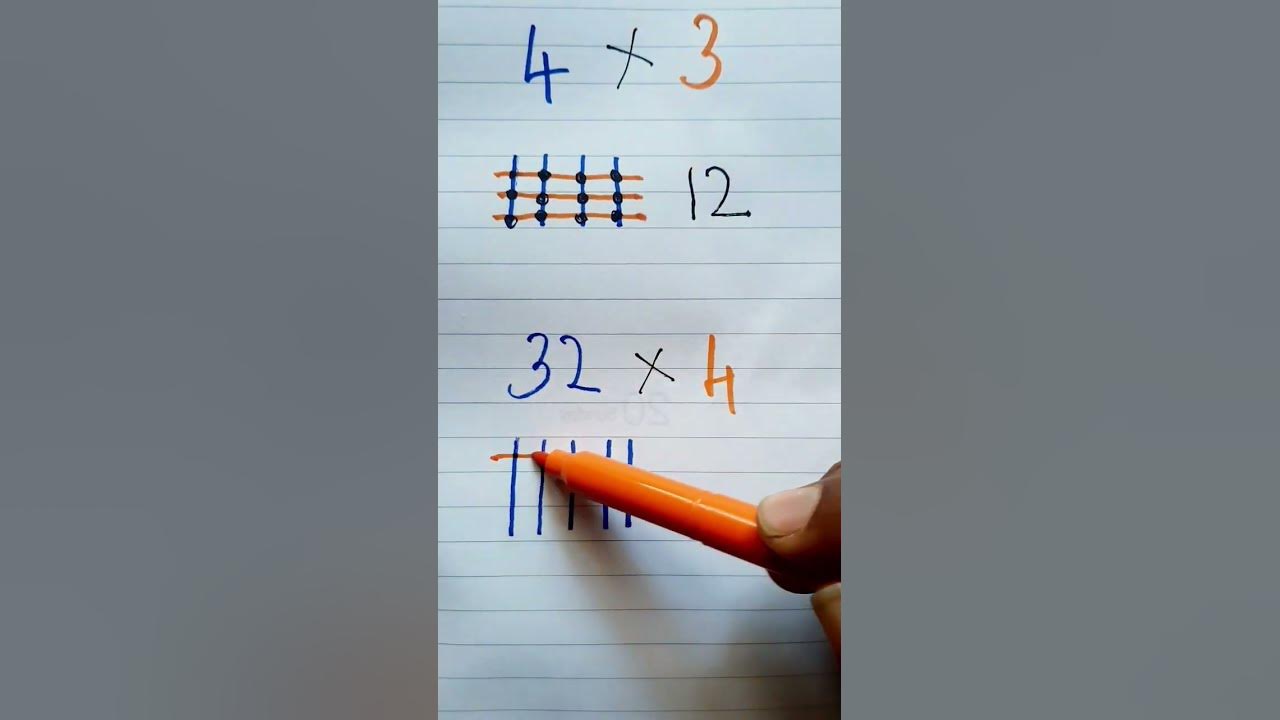 4 × 3
12
32 × 4